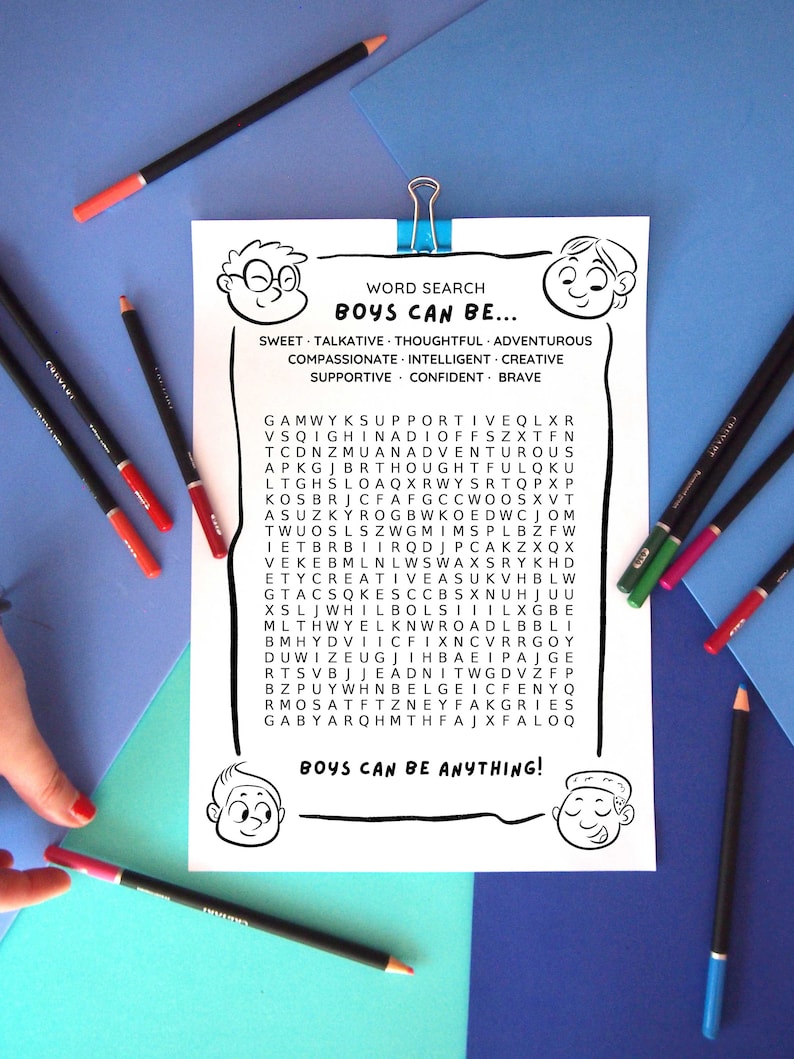 WORD SEARCH
BOYS CAN BE...
SWEET · TALKATIVE · THOUGHTFUL · ADVENTUROUS
COMPASSIONATE · INTELLIGENT · CREATIVE
SUPPORTIVE · CONFIDENT · BRAVE
G A M W Y K S U P P O R T I V E Q L X R
V S Q I G H I N A D I O F F S Z X T F N
T C D N Z M U A N A D V E N T U R O U S
A P K G J B R T H O U G H T F U L Q K U
L T G H S L O A Q X R W Y S R T Q P X P
K O S B R J C F A F G C C W O O S X V T
A S U Z K Y R O G B W K O E D W C J O M
T W U O S L S Z W G M I M S P L B Z F W
I E T B R B I I R Q D J P C A K Z X Q X
V E K E B M L N L W S W A X S R Y K H D
E T Y C R E A T I V E A S U K V H B L W
G T A C S Q K E S C C B S X N U H J U U
X S L J W H I L B O L S I I I L X G B E
M L T H W Y E L K N W R O A D L B B L I
B M H Y D V I I C F I X N C V R R G O Y
D U W I Z E U G J I H B A E I P A J G E
R T S V B J J E A D N I T W G D V Z F P
B Z P U Y W H N B E L G E I C F E N Y Q
R M O S A T F T Z N E Y F A K G R I E S
G A B Y A R Q H M T H F A J X F A L O Q
BOYS CAN BE ANYTHING!
CREVART
CREVART
CREVART